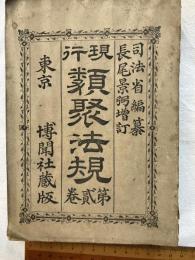 司法省編纂
長尾景弼增訂
現行
類聚法規
第貳卷
東京
博聞社蔵版